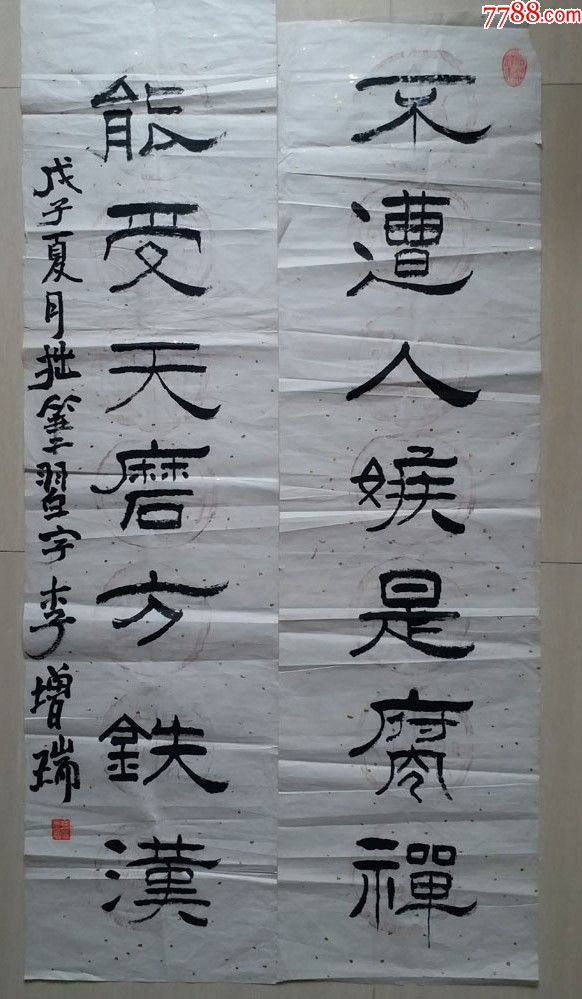 7788.com
不遭人嫉是腐禪
能受天磨方鉄漢
戊子夏月拙筆習字李增瑞